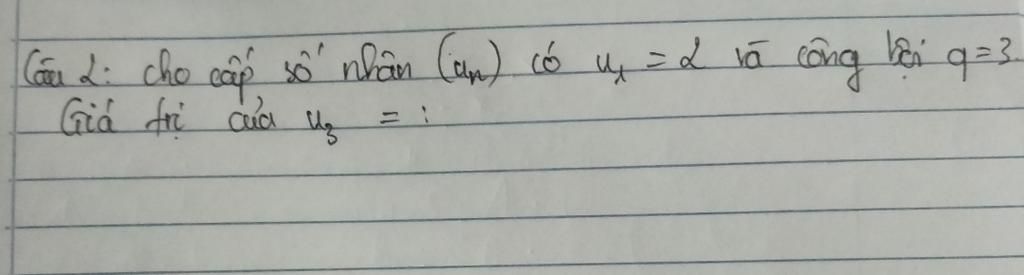 Câu 2: cho cấp số nhân (un) có u1 = 2 và công bội q = 3.
Giá trị của u3 = :